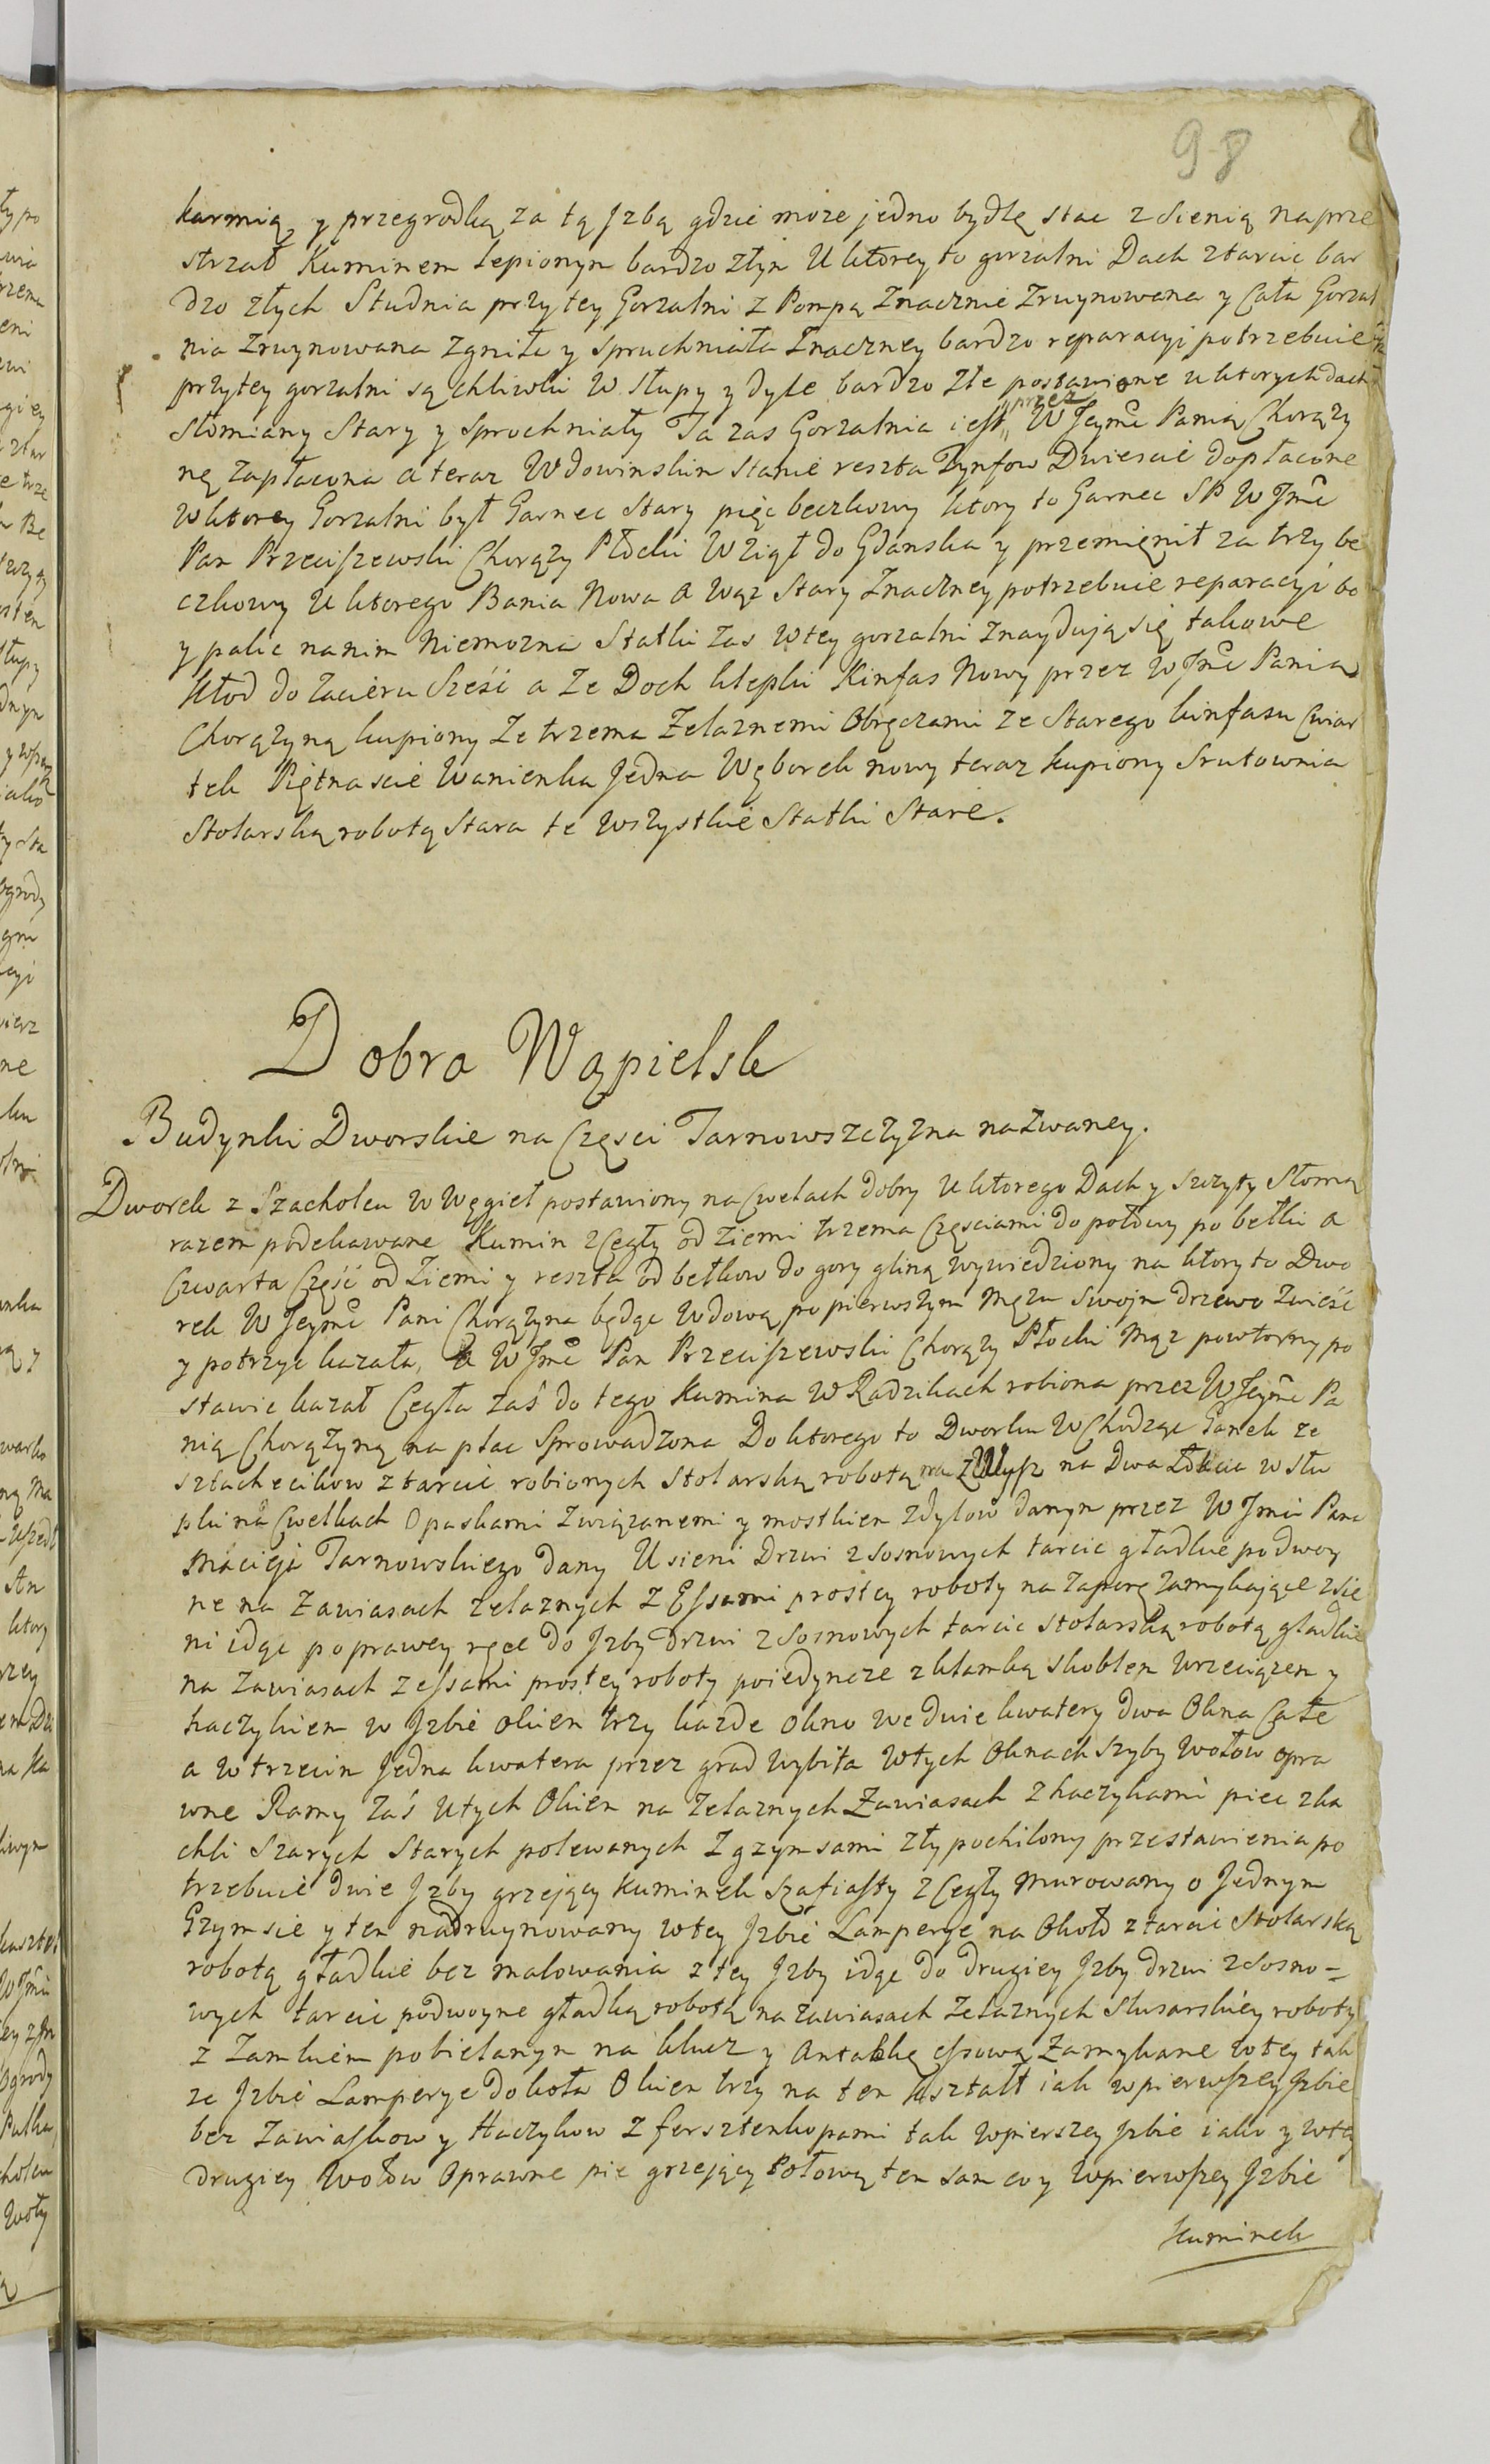 98
karmią y przegrodką za tą Jzbą gdzie może jedno bydlę stac z Sienią na prze
strzał Kuminem lepionym bardzo złym U ktorey to gorzalni Dach z tarcic bar
dzo złych Studnia przy tey Gorzalni z Pompą Znacznie Zruynowana y Cała Gorzal
nia Zruynowana zgniła y spruchniała Znaczney bardzo reparacyi potrzebuie
przy tey gorzalni są chliwki w słupy z dyle bardzo złe postawione u ktorych dach
słomiany Stary y Spruchniały Ta zas Gorzalnia iest przez W Jeymć Panią Chorąży
nę zapłacona a teraz Wdowinskim stanie reszta Tynfow Dwiescie dopłacone
w ktorey Gorzalni był Garnec Stary pięc beczkowy ktory to Garnec SP W Jmć
Pan Przeciszewski Chorąży Płocki Wziął do Gdanska y przemięnił za trzy be
czkowy u ktorego Bania Nowa a Wąż Stary Znaczney potrzebuie reparacyi bo
y palic na nim Niemozna Statki zas w tey gorzalni znaydują się takowe
Kłod do zacieru Sześć a Ze Doch klepki Kinfas Nowy przez W Jmć Panią
Chorążyną kupiony Ze trzema Zelaznemi Obręczami ze Starego kinfasu Cwiar
tek Piętnascie Wanienka Jedna Węborek nowy teraz kupiony Srutownia
Stolarską robotą Stara te wszystkie Statki Stare.
Dobra Wąpielsk
Budynki Dworskie na Częsci Tarnowszczyzna nazwaney.
Dworek z Szacholcu w Węgieł postawiony na Cwelach dobry U ktorego Dach y szczyty Słomą
razem podekawane Kumin z Cegły od ziemi trzema Częsciami do połowy po belki a
Czwarta Część od Ziemi y reszta od belkow do gory gliną wywiedziony na ktory to Dwo
rek W Jeymć Pani Chorążyna będąc wdową po pierwszym Mężu swoim drzewo Zwieść
y potrzyc kazała, a W Jmć Pan Przeciszewski Chorąży Płocki Mąż powtorny po
stawic kazał Cegła zaś do tego Kumina w Radzikach robiona przez W Jeymć Pa
nią Chorążyną na plac Sprowadzona Do ktorego to Dworku Wchodząc Ganek ze
sztachecikow z tarcic robionych stolarską robotą na Dwa Łokcia w słu
pki na Cwelkach Opaskami Związanemi y mostkiem z dylow danym przez W Jmći Pana
Macieja Tarnowskiego dany U sieni Drzwi z sosnowych tarcic gładkie podwoy
ne na Zawiasach zelaznych z Essami prostey roboty na zaporę zamykające z Sie
ni idąc po prawey ręce do Jzby drzwi z sosnowych tarcic stolarską robotą gładkie
na Zawiasach z essami prostey roboty poiedyncze z klamką skoblem wrzeciązem y
haczykiem w Jzbie okien trzy kazde Okno we dwie kwatery dwa Okna Całe
a w trzecim Jedna kwatera przez grad wybita w tych Oknach szyby w ołow opra
wne Ramy Zaś u tych Okien na Zelaznych Zawiasach z haczykami piec z ka
chli Szarych Starych polewanych z gzymsami zły pochilony przestawienia po
trzebuie dwie Jzby grzejący kuminek Szafiasty z Cegły Murowany o Jednym
Gzymsie y ten nadruynowany w tey Jzbie Lamperye na Około z tarcic Stolarską
robotą gładkie bez malowania z tey Jzby idąc do drugiey Jzby drzwi z sosno=
wych tarcic podwoyne gładką robotą na zawiasach Zelaznych Slusarskiey roboty
z Zamkiem pobielanym na klucz y Antabką essową Zamykane w tey tak
ze Jzbie Lamperye dokoła Okien trzy na ten kształt iak w pierwszey Jzbie
bez Zawiaskow y Haczykow z fersztenkopami tak w pierszey Jzbie iako y w tey
drugiey w ołow Oprawne pie grzejący Połową ten sam co y w pierwszey Jzbie
Kuminek